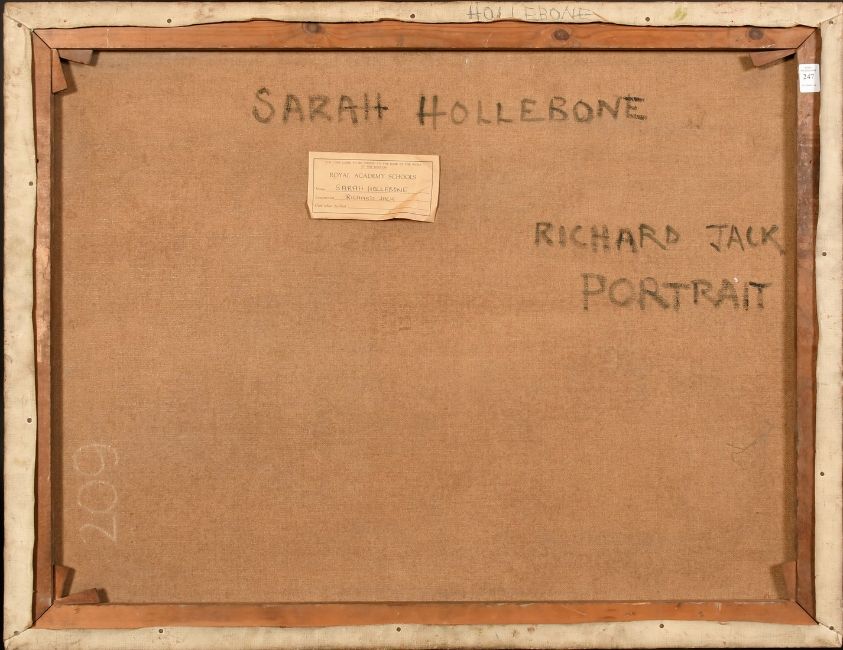 HOLLEBONE
247
SARAH HOLLEBONE
ROYAL ACADEMY SCHOOLS
SARAH HOLLEBONE
RICHARD JACK
RICHARD JACK
PORTRAIT
209